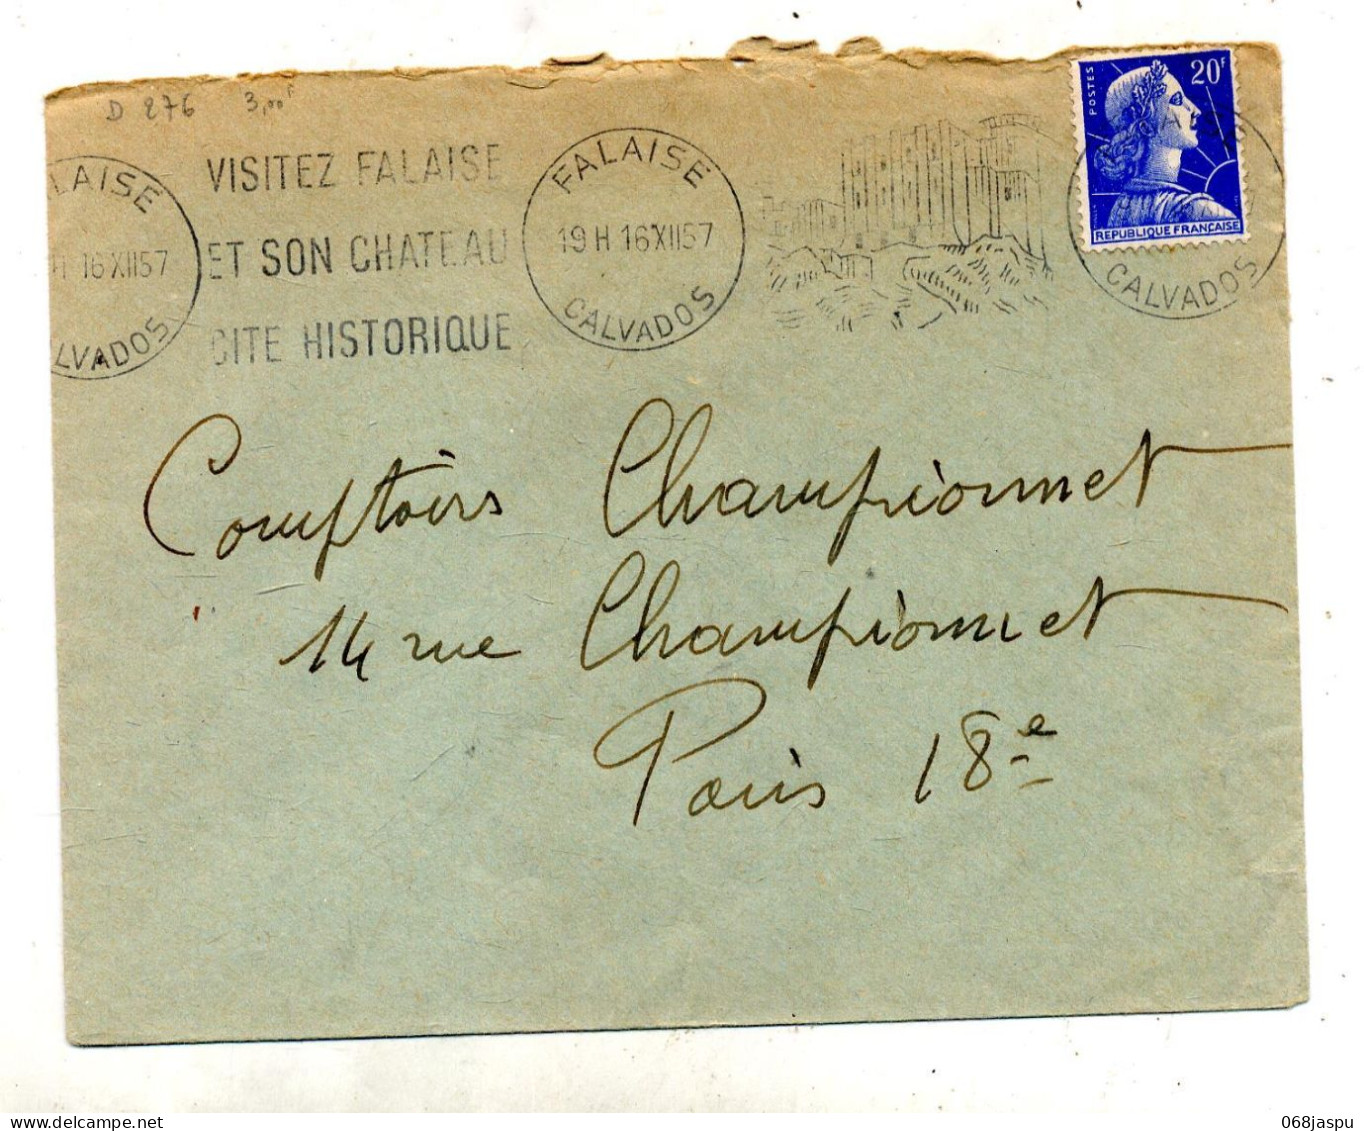 D 276 3,00F
LAISE
H 16 XII 57
LVADOS
VISITEZ FALAISE
ET SON CHATEAU
CITE HISTORIQUE
FALAISE
19 H 16 XII 57
CALVADOS
POSTES
20F
REPUBLIQUE FRANÇAISE
CALVADOS
Comptoirs Championnet
14 rue Championnet
Paris 18e
068jaspu